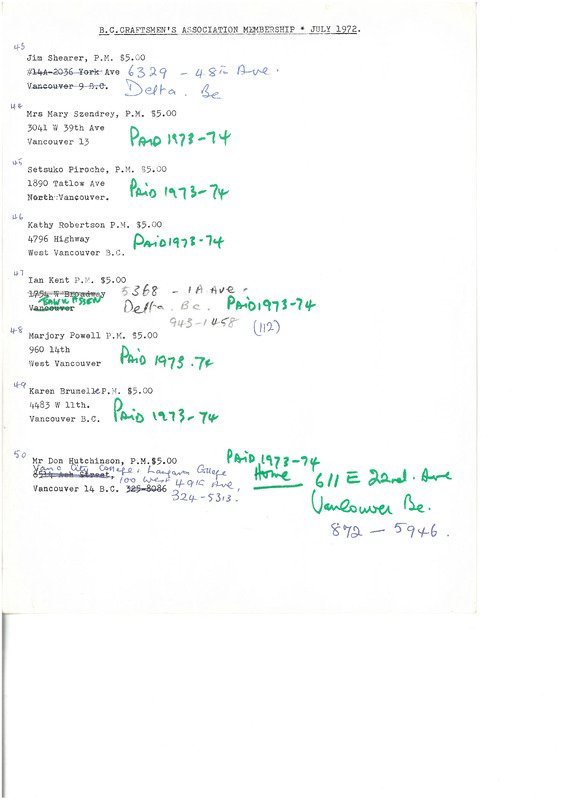 B.C.CRAFTSMEN'S ASSOCIATION MEMBERSHIP * JULY 1972.
43
Jim Shearer, P.M. $5.00
#14A-2036 York Ave 6329 - 48th Ave.
Vancouver 9 B.C. Delta. Bc
44
Mrs Mary Szendrey, P.M. $5.00
3041 W 39th Ave
Vancouver 13 PAID 1973-74
45
Setsuko Piroche, P.M. $5.00
1890 Tatlow Ave
North Vancouver. PAID 1973-74
46
Kathy Robertson P.M. $5.00
4796 Highway PAID 1973-74
West Vancouver B.C.
47
Ian Kent P.M. $5.00
1754 W Broadway 5368 - 1A Ave.
Vancouver Delta. Bc. PAID 1973-74
943-1458 (112)
48
Marjory Powell P.M. $5.00
960 14th
West Vancouver PAID 1973.74
49
Karen Brumelle P.M. $5.00
4483 W 11th.
Vancouver B.C. PAID 1973-74
50
Mr Don Hutchinson, P.M.$5.00 PAID 1973-74
Vanc City College, Langara College Home 611 E 22nd. Ave
Ash Street, 100 West 49th Ave,
Vancouver 14 B.C. 325-8086 324-5313. Vancouver Bc.
872 - 5946.